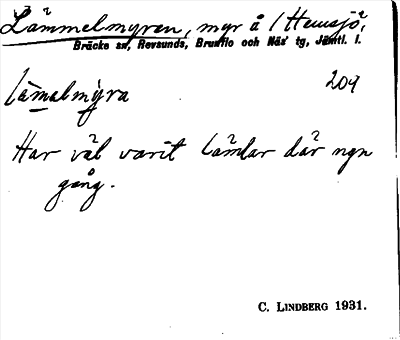 Lämmelmyren, myr å Hemsjö,
Bräcke sn, Revsunds, Brunflo och Näs' tg, Jämtl. l.
lämelmýra 204
Har väl varit lämlar där ngn
gång.
C. LINDBERG 1931.